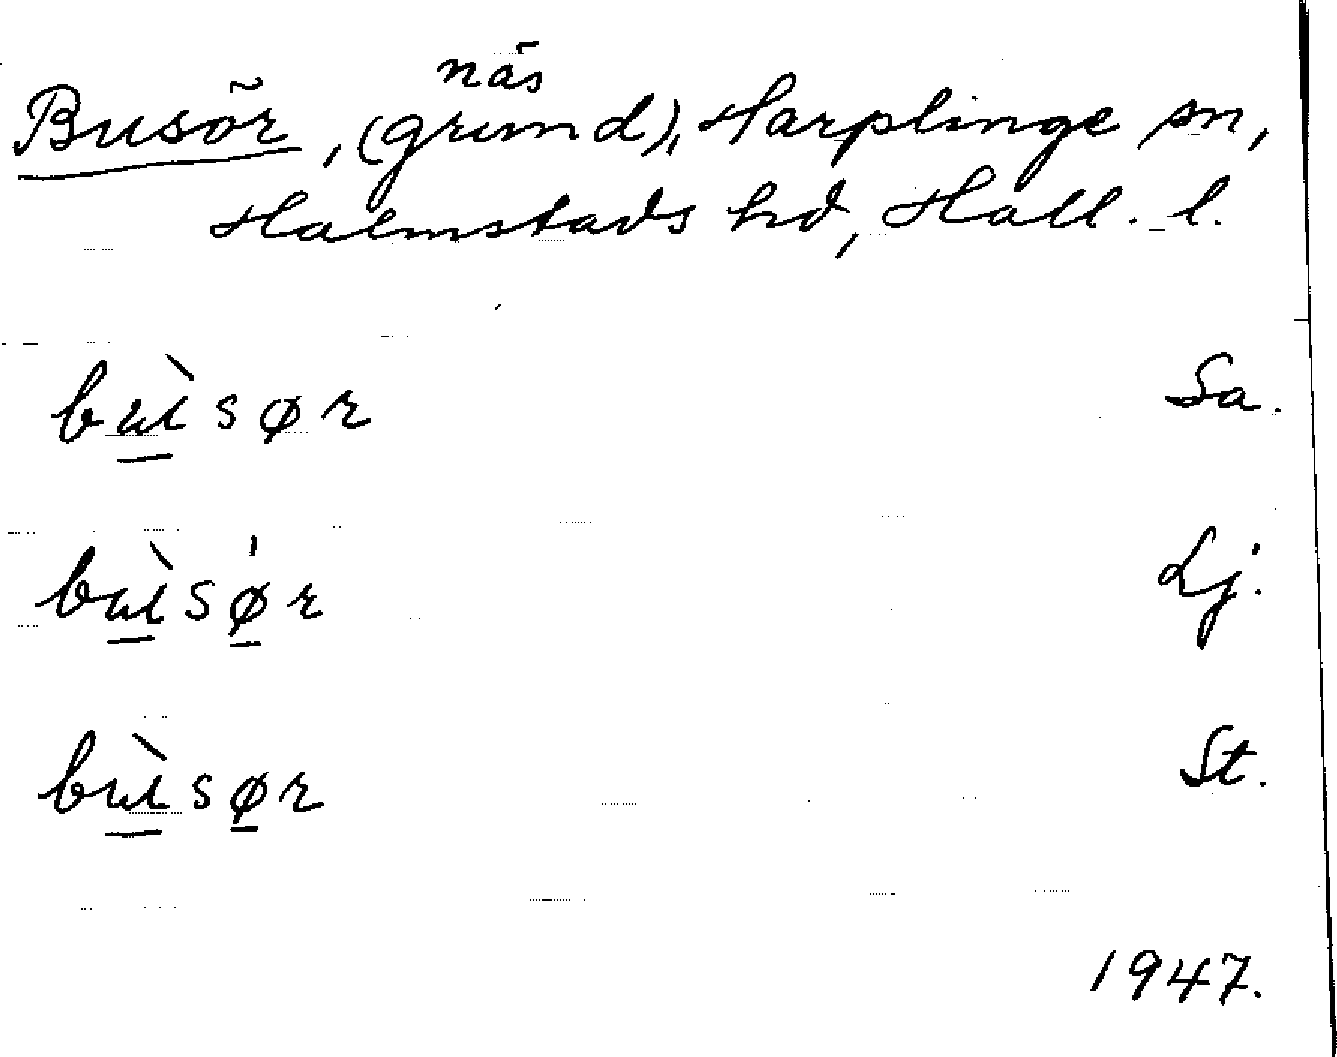 näs
Busör, (grund), Harplinge sn,
Halmstads hd, Hall. l.
bù̲sør Sa.
bù̲sø̲̍r Lj.
bù̲sø̲r St.
1947.